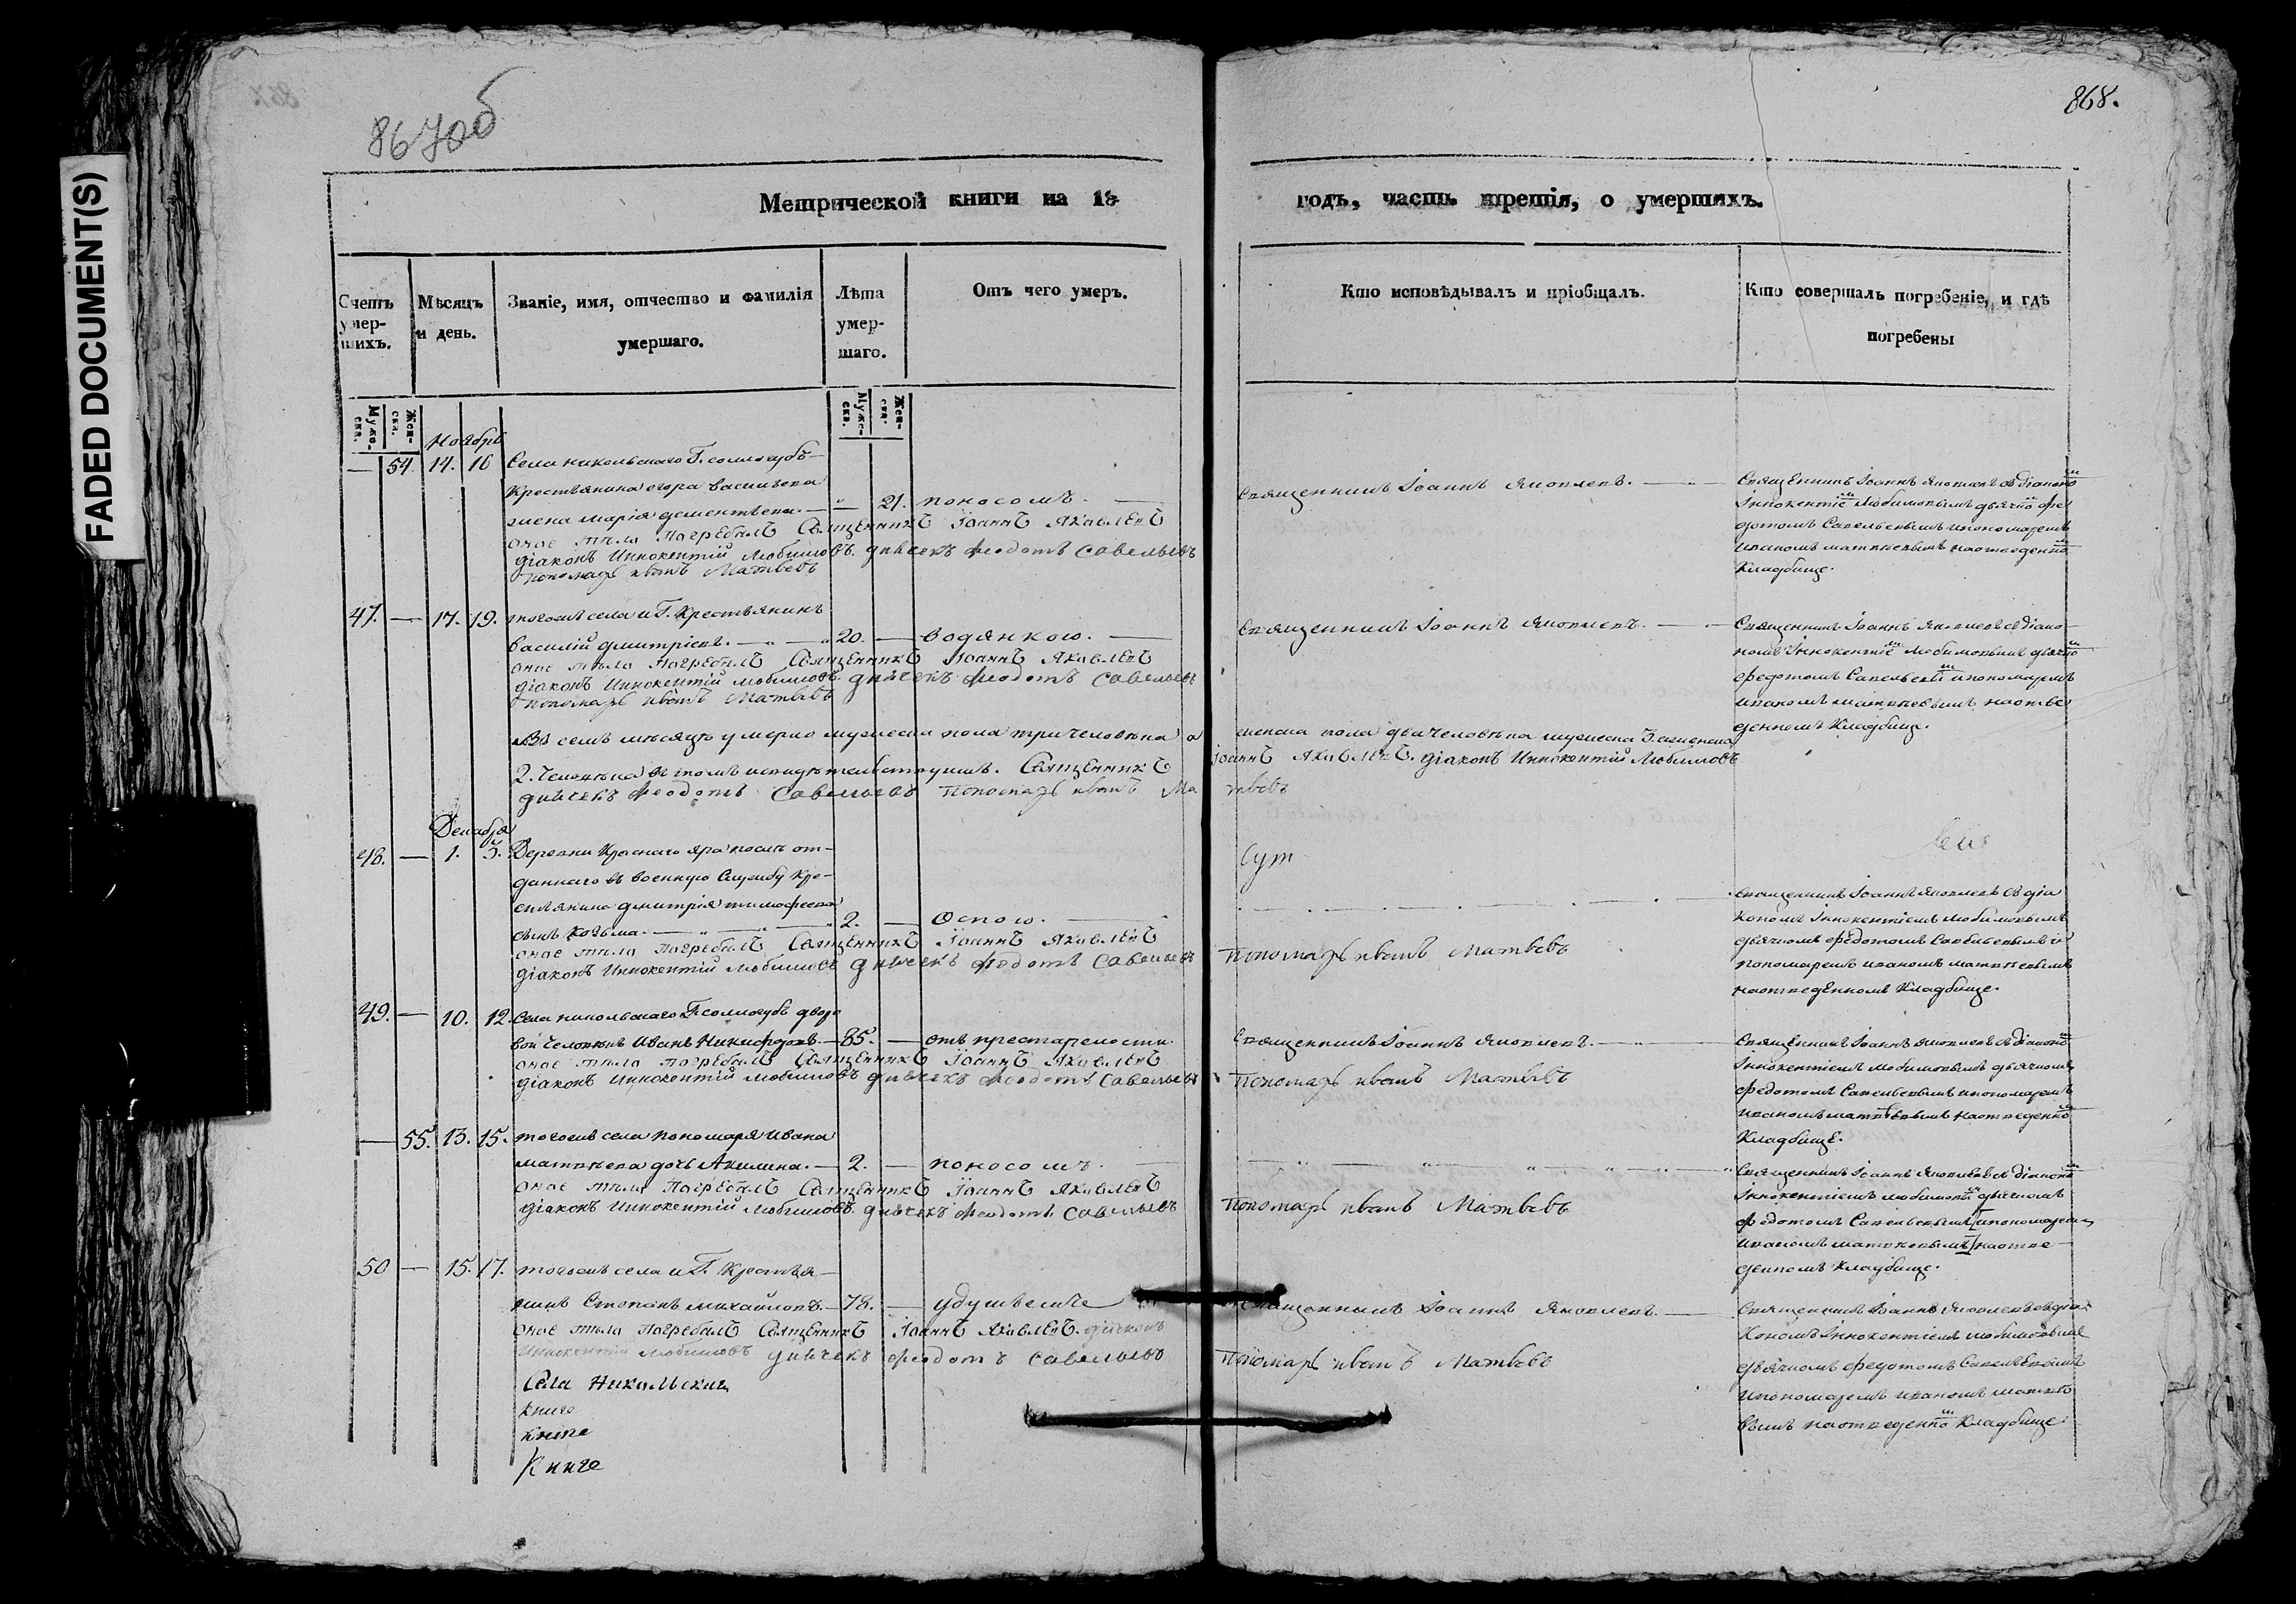 FADED DOCUMENT(S)
867об
868.
Метрической книги на 18
годъ, часть третія, о умершихъ.
Счетъ умер-шихъ.
Мѣсяцъ и день.
Званіе, имя, отчество и фамилія
умершаго.
Лѣта
умер-
шаго.
Отъ чего умеръ.
Кто исповѣдывалъ и пріобщалъ.
Кто совершалъ погребеніе, и гдѣ
погребены
Муже-ска.
Жен-ска.
Муже-ска.
Жен-ска.
Ноября
— 54. 14. 16 Села никольскаго Г. сологубъ
крестьянина егора васильева
жена марія дементьева. — 21. поносомъ.
оное тѣло погребалъ Священникъ Іоаннъ Яковлевъ
діаконъ Иннокентій Любимовъ. дьячекъ Феодотъ Савельевъ
пономарь иванъ Матвѣевъ
Священникъ Іоаннъ Яковлевъ.
Священникъ Іоаннъ Яковлевъ съ діаконо
Іннокентіе Любимовымъ дьячко фе
дотомъ Савельевымъ ипономаремъ
иваномъ матвѣевымъ наотведенно
Кладбище.
47. — 17. 19. тогожъ села и Г. Крестьянинъ
василій дмитріевъ. — 20. — водянкою.
оное тѣло погребалъ Священникъ Іоаннъ Яковлевъ
діаконъ Иннокентій Любимовъ. дьячекъ Феодотъ Савельевъ
пономарь иванъ Матвѣевъ
Священникъ Іоаннъ Яковлевъ.
Священникъ Іоаннъ Яковлевъ съ діако-
номъ Іннокентіе любимовымъ дьячко
федотомъ Савельевы ипономаремъ
иваномъ матвѣевымъ наотве
денномъ Кладбище.
Въ семъ мѣсяцѣ умерло мужеска пола тричеловѣка а
женска пола двачеловѣка мужеска 3. аженска
2. человѣка въ томъ исвидѣтельствуемъ. Священникъ
Іоаннъ Яковлевъ. діаконъ Иннокентій Любимовъ
дьячекъ Феодотъ Савельевъ Пономарь иванъ Ма
твѣевъ
Декабря
48. — 1. 3. Деревни Краснаго яра послѣ от-
даннаго въ военную Службу Кре-
стьянина дмитрія тимофеева
сынъ Козьма. — 2. — Оспою.
оное тѣло погребалъ Священникъ Іоаннъ Яковлевъ
діаконъ Иннокентій Любимовъ дьячекъ Федотъ Савельевъ
Пономарь иванъ Матвѣевъ
священникъ Іоаннъ Яковлевъ съ діа
кономъ Іннокентіемъ любимовымъ
дьячкомъ федотомъ Савельевымъ и
пономаремъ иваномъ матвѣевымъ
наотведенномъ Кладбище.
49. — 10. 12. Села никольскаго Г. сологубъ дворо
вой человѣкъ Иванъ Никифоровъ. — 85. — отъ престарелости
оное тѣло погребалъ Священникъ Іоаннъ Яковлевъ
діаконъ Иннокентій любимовъ дьячекъ Феодотъ Савельевъ
Священникъ Іоаннъ Яковлевъ.
Пономарь иванъ Матвѣевъ
Священникъ Іоаннъ Яковлевъ съ діаконо
Іннокентіемъ любимовымъ дьячкомъ
федотомъ Савельевымъ ипономаремъ
иваномъ матвѣевымъ наотведенно
Кладбище.
— 55. 13. 15. тогожъ села пономаря ивана
матвѣева дочь Акилина. — 2. — поносомъ.
оное тѣло погребалъ Священникъ Іоаннъ Яковлевъ
діаконъ Иннокентій Любимовъ. дьячекъ Феодотъ Савельевъ
Пономарь иванъ Матвѣевъ
Священникъ Іоаннъ Яковлевъ съ діаконо
Іннокентіемъ любимовы дьячкомъ
федотомъ Савельевымъ ипономаремъ
иваномъ матвѣевымъ наотве-
денномъ Кладбище.
50 — 15. 17. тогожъ села и Г. Крестья-
нинъ Степанъ михайловъ. — 78. — удушьемъ
оное тѣло погребалъ Священникъ Іоаннъ Яковлевъ. діаконъ
Иннокентій Любимовъ дьячекъ Феодотъ Савельевъ
Священникъ Іоаннъ Яковлевъ
Пономарь иванъ Матвѣевъ
Священникъ Іоаннъ Яковлевъ съ діа-
Кономъ Іннокентіемъ любимовымъ
дьячкомъ федотомъ Савельевымъ
ипономаремъ иваномъ матвѣ
вымъ наотведенно Кладбище
Села Никольскаго
книге
книге
Книге